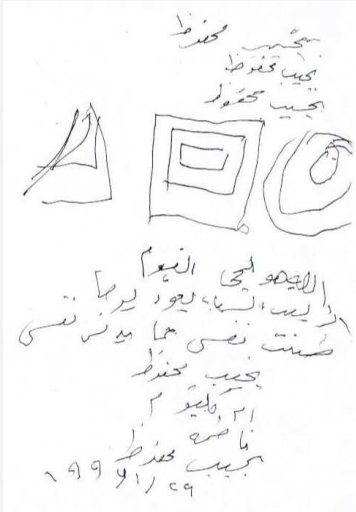 نجيب محفوظ
نجيب محفوظ
نجيب محفوظ
الله هو الحي القيوم
الا ليت الشباب يعود يوما
صنت نفسي عما يدنس نفسي
نجيب محفوظ
ام كلثوم
فاطمة
نجيب محفوظ
١٩٩٦/١/٢٩